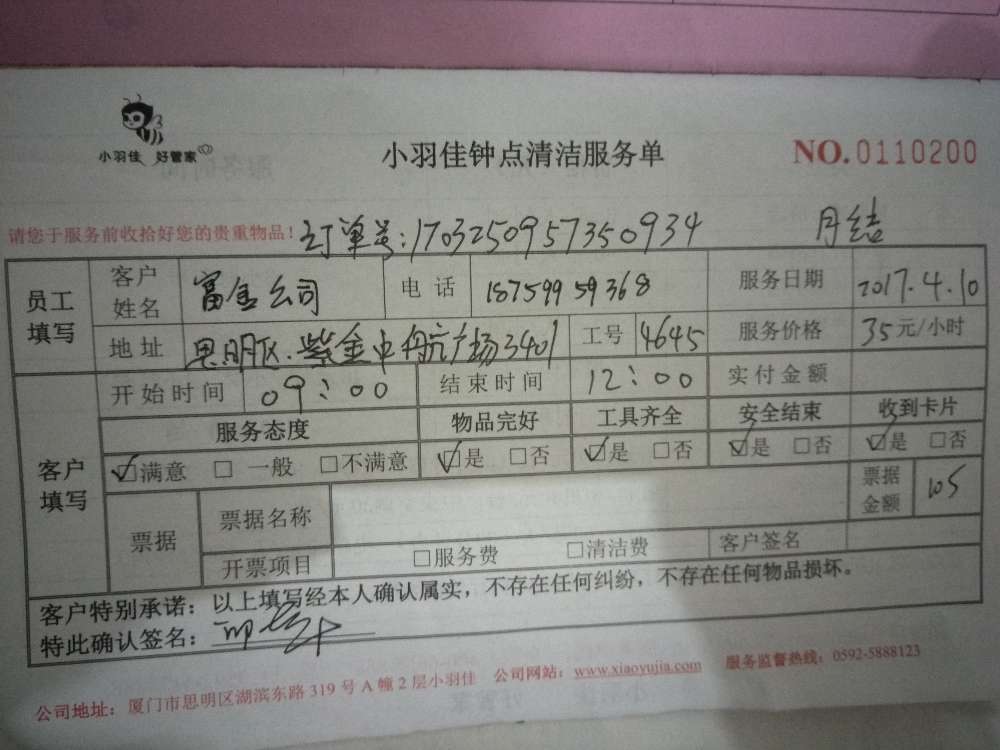 小羽佳 好管家
小羽佳钟点清洁服务单
NO.0110200
请您于服务前收拾好您的贵重物品！ 订单号：1703250957350934 月结
员工填写 客户姓名 富金公司 电话 18759959368 服务日期 2017.4.10
地址 思明区.紫金中航广场3401 工号 4645 服务价格 35元/小时
客户填写 开始时间 09：00 结束时间 12：00 实付金额
服务态度 物品完好 工具齐全 安全结束 收到卡片
☑满意 □ 一般 □不满意 ☑是 □否 ☑是 □否 ☑是 □否 ☑是 □否
票据 票据名称 票据金额 105
开票项目 □服务费 □清洁费 客户签名
客户特别承诺：以上填写经本人确认属实，不存在任何纠纷，不存在任何物品损坏。
特此确认签名：
公司地址：厦门市思明区湖滨东路319号A幢2层小羽佳 公司网站：www.xiaoyujia.com 服务监督热线：0592-5888123